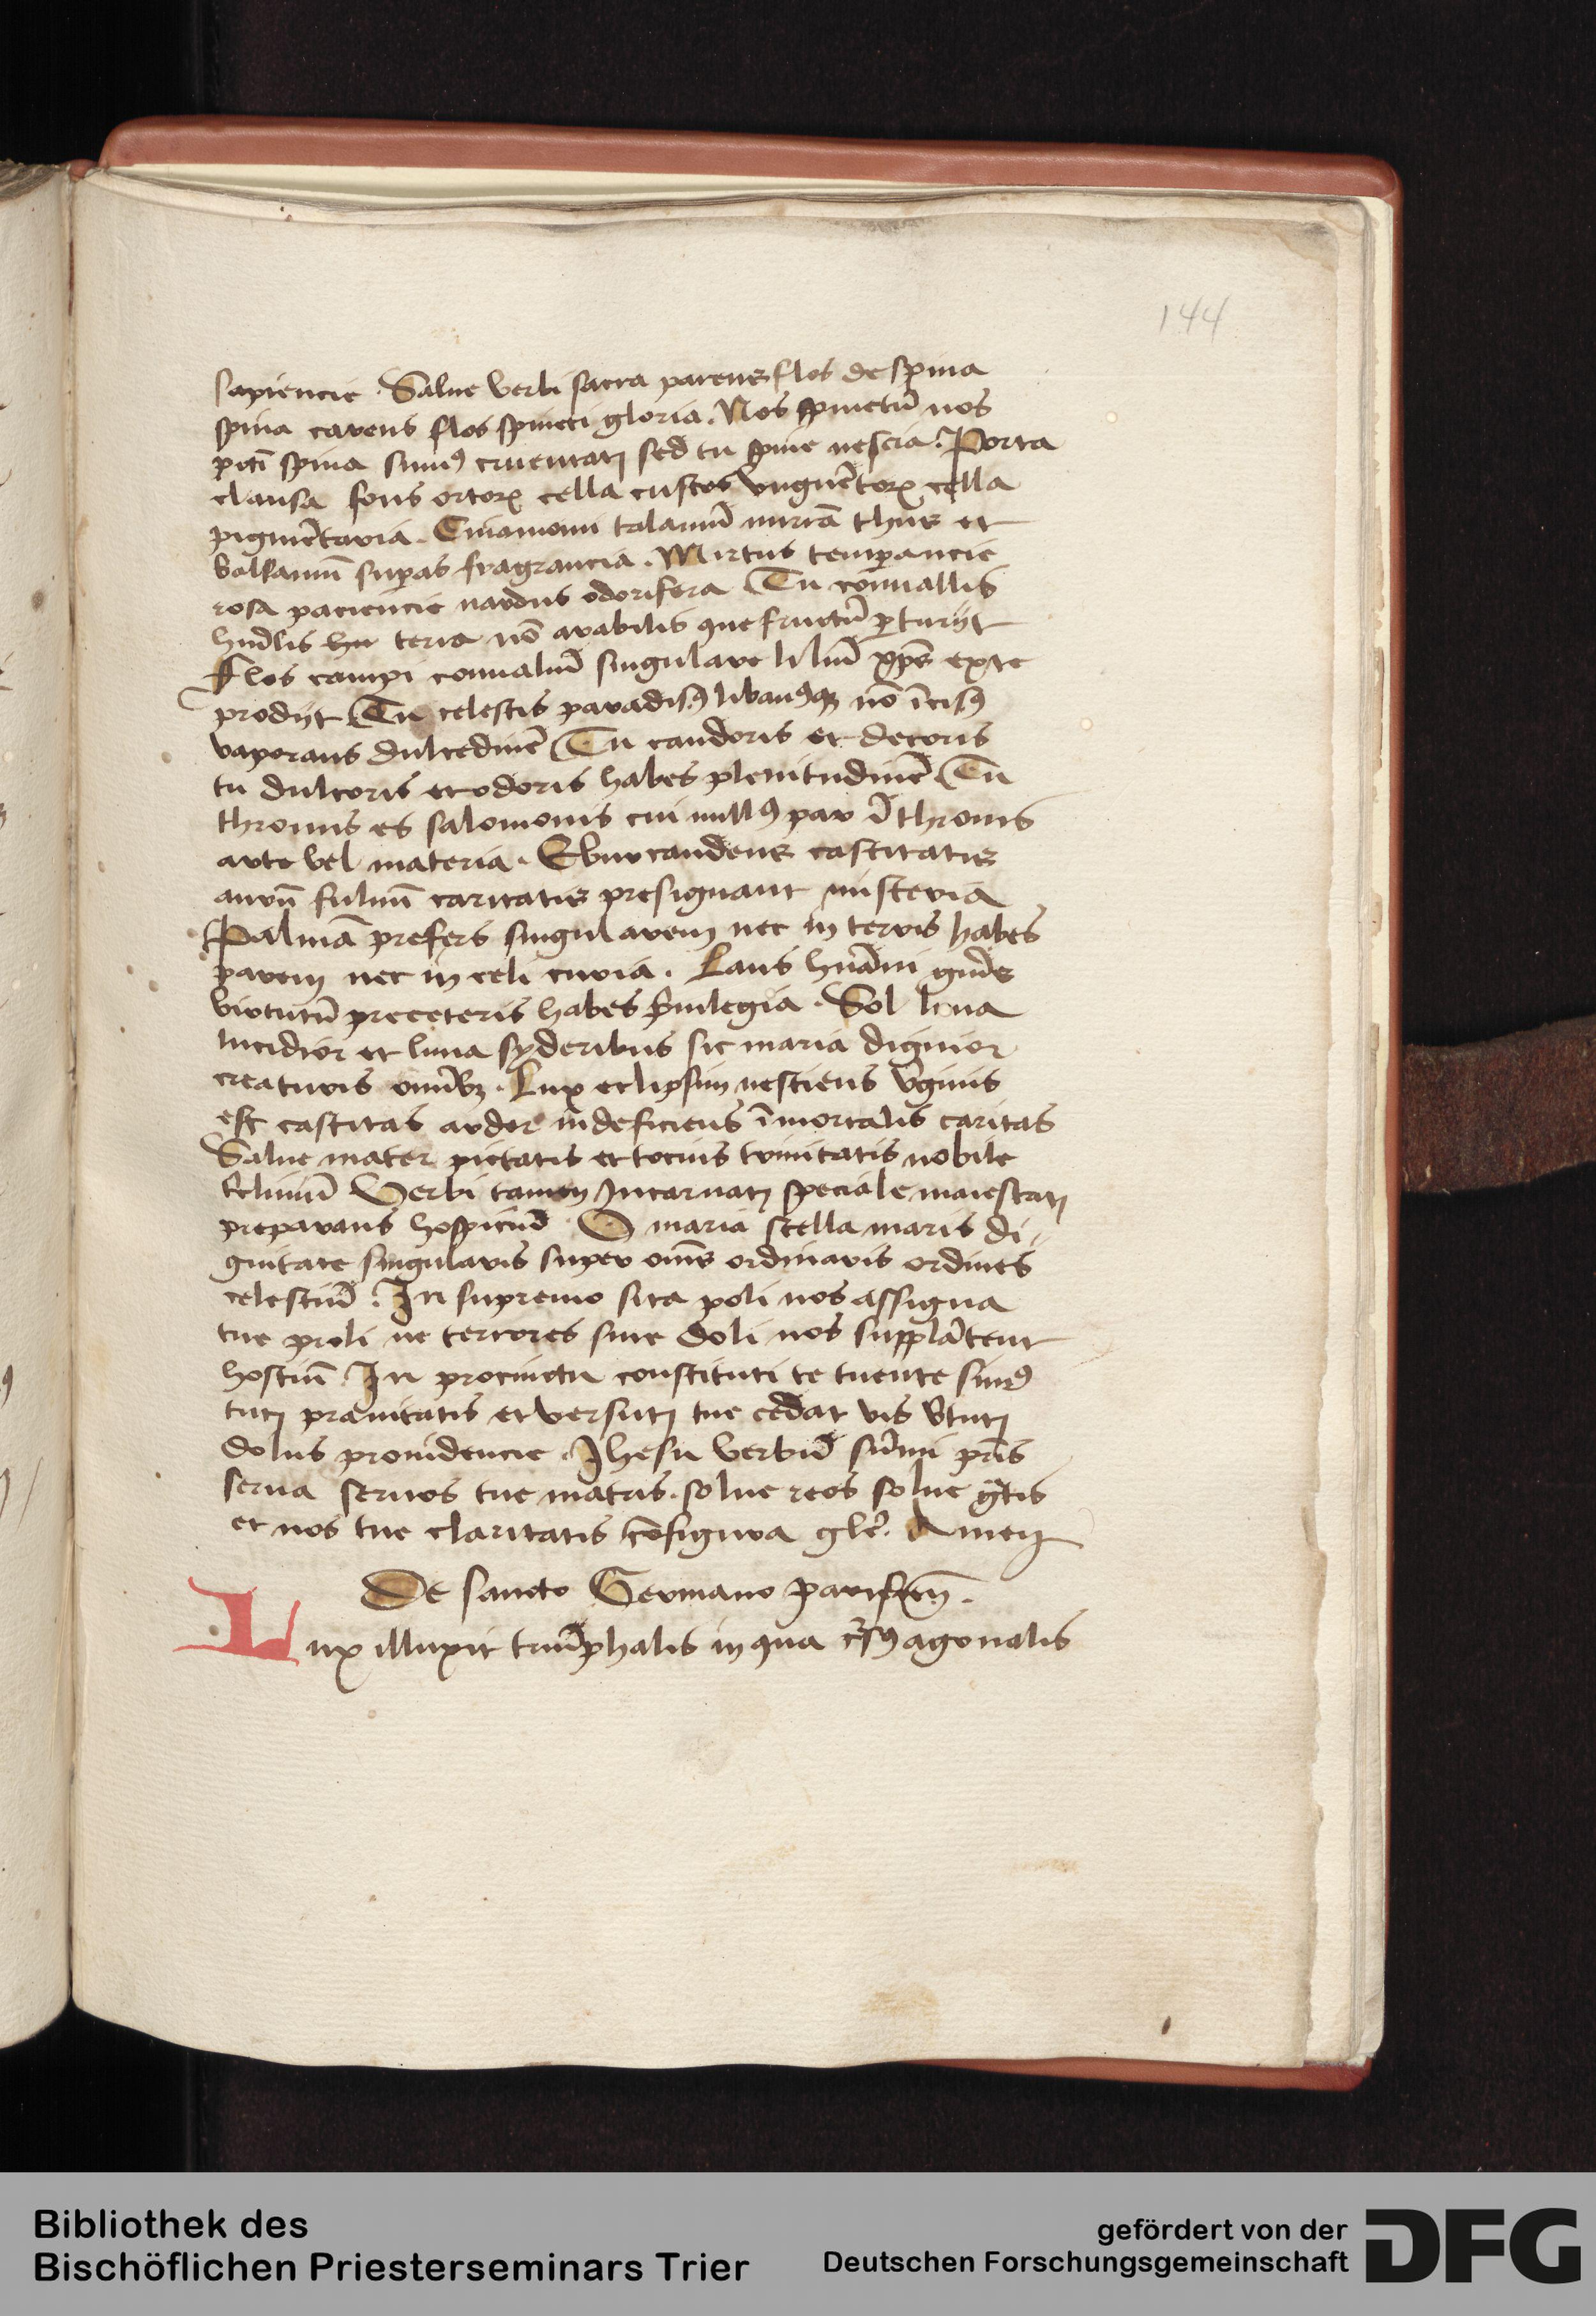 144
sapiencie . Salue verbi sacra parens flos de spina
spina carens flos spineti gloria . Nos spinetū nos
pcti spina sumꝰ cruentati sed tu spine nescia . Porta
clausa fons ortoꝝ cella custos vnguētoꝝ cella
pigmētaria . Cinamomi calamū mirrā thus et
balsamū supas fragrancia . Mirtus temperancie
rosa paciencie nardus odorifera Tu conuallis
humilis terra nō arabilis que fructū parturijt
Flos campi conualliū singulare liliū xp̄s ex te
prodijt Tu celestis paradisꝰ libanꝰqꝫ nō īcisꝰ
vaporans dulcedinē Tu candoris et decoris
tu dulcoris et odoris habes plenitudinē Tu
thronus es salomonis cui nullꝰ par ī thronis
arte vel materia . Ebur candens castitatis
aurū fuluū caritatis presignant misteria
Palmā prefers singularem nec in terris habes
parem nec in celi curia . Laus hūani gn̄is
virtutū pre ceteris habes p̄uilegia . Sol luna
lucidior et luna syderibus sic maria dignior
creaturis omībꝫ . Lux eclipsim nesciens v̄ginis
est castitas ardor indeficiens īmortalis caritas
Salue mater pietatis et tocius trinitatis nobile
tricliniū Verbi tamen incarnati speciale maiestati
preparans hospiciū O maria stella maris di
gnitate singularis super om̄s ordinaris ordines
celestiū . In supremo sita poli nos assigna
tue proli ne terrores siue doli nos supplātent
hostiū In procinctu constituti te tuente simꝰ
tuti prauitatis et versuti tue cedat vis v̄tuti
dolus prouidencie . Ihesu verbū sūmi pr̄is
serua seruos tue matris . solue reos solue gr̄tis
et nos tue claritatis cōfigura gl̄e . Amen
De sancto Germano parisien̄ .
Lux illuxit triūphalis in qua agonalis
Bibliothek des
Bischöflichen Priesterseminars Trier
gefördert von der
Deutschen Forschungsgemeinschaft
DFG